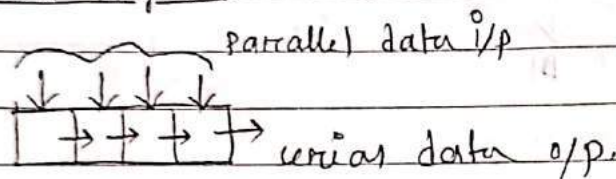 parallel data i/p
serial data o/p.